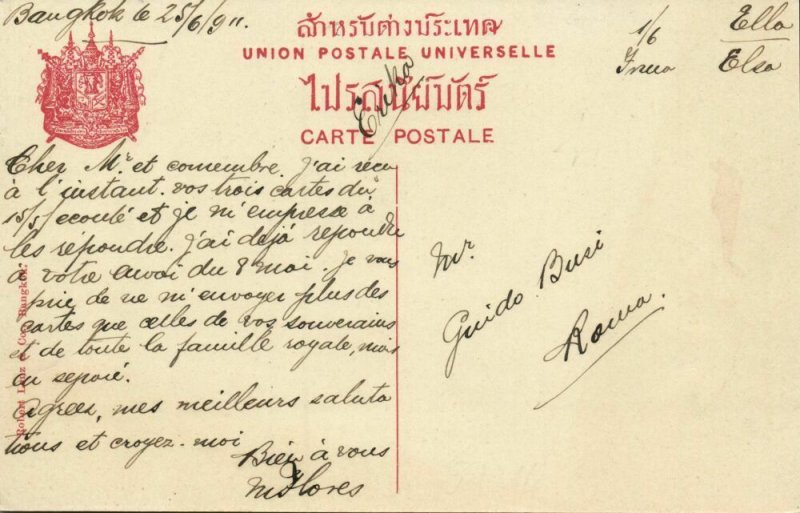 Bangkok le 25/6/911.
สำหรับต่างประเทศ
UNION POSTALE UNIVERSELLE
ไปรสนียบัตร์
CARTE POSTALE
1/6
Ella
Elsa
Cher Mr. et comembre. J'ai recu
à l'instant. vos trois cartes du
15/5/ ecoulé et je m'empresse à
les répondre. J'ai dejá repondu
à votre envoi du 8 mai. Je vous
prie de ne m'envoyer plus des
cartes que celles de vos souverains
et de toute la famille royale, mais
en separé.
Agrees, mes meilleurs saluta
tions et croyez-moi
Bien à vous
Flores
Mr.
Guido Busi
Roma.
Robert Lenz & Co., Bangkok.